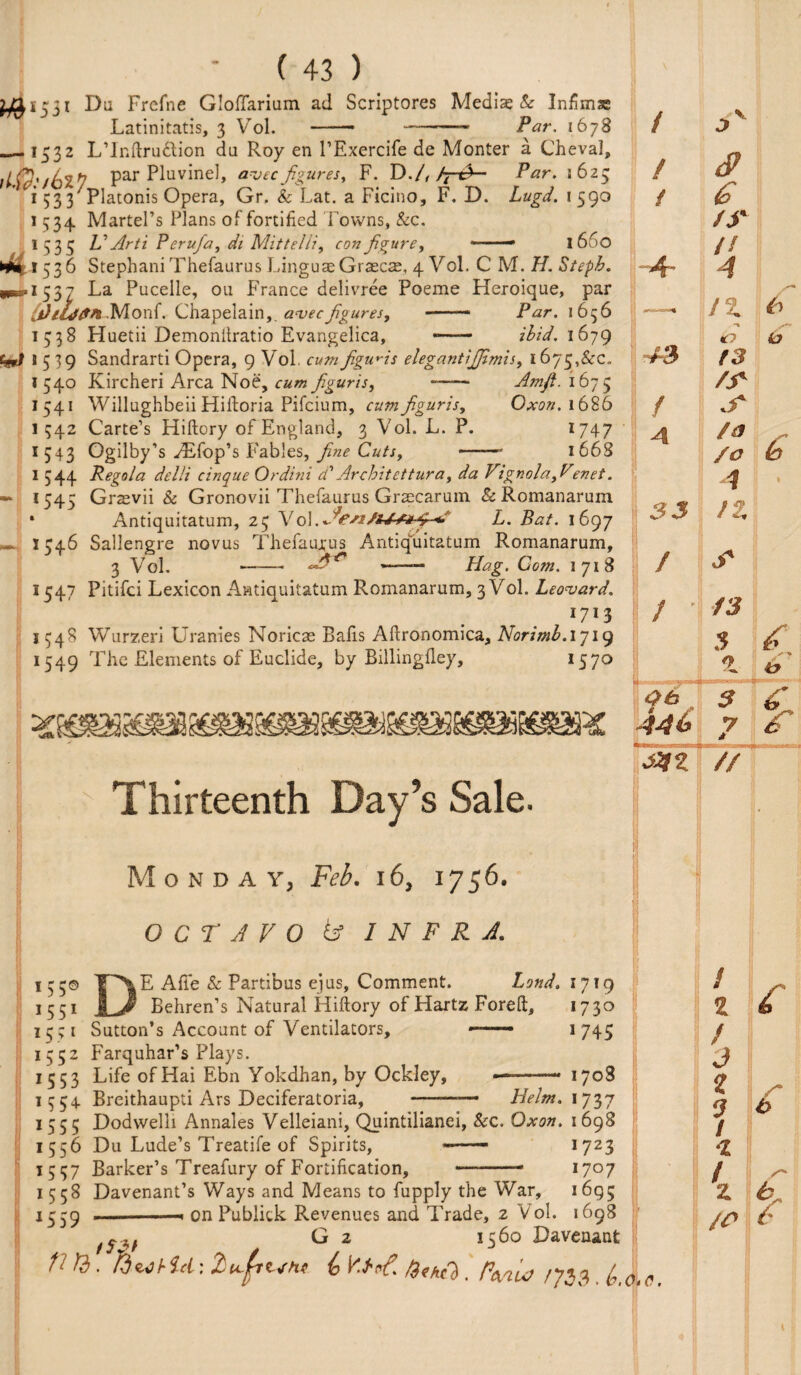 ( 43 )
1531 Du Frefne Gloffarium ad Scriptores Mediæ & Infimæ
Latinitatis, 3 Vol. —— —— Par. 1678 1 5
1532 L'Inftruction du Roy en l'Exercife de Monter à Cheval,
par Pluvinel, avec figures, F. D. Par. 1625 1 8
1533 Platonis Opera, Gr. & Lat. a Ficino, F. D. Lugd. 1590 1 6
1534 Martel's Plans of fortified Towns, &c. 15
1535 L'Arti Perufa, di Mittelli, con figure, —— 1660 11
1536 Stephani Thefaurus Linguæ Græcæ, 4 Vol. C M. H. Steph. 4 4
1537 La Pucelle, ou France delivrée Poeme Heroique, par
Monf. Chapelain, avec figures, —— Par. 1656 — 12 6
1538 Huetii Demonftratio Evangelica, —— ibid. 1679 6 6
1539 Sandrarti Opera, 9 Vol. cum figuris elegantiffimis, 1675, &c. 13 13
1540 Kircheri Arca Noë, cum figuris, —— Amft. 1675 15
1541 Willughbeii Hiftoria Pifcium, cum figuris, Oxon. 1686 1 5
1542 Carte's Hiftory of England, 3 Vol. L. P. 1747 4 10
1543 Ogilby's Æfop's Fables, fine Cuts, —— 1668 10 6
1544 Regola delli cinque Ordini d'Architettura, da Vignola, Venet. 4
1545 Grævii & Gronovii Thefaurus Græcarum & Romanarum
Antiquitatum, 25 Vol. L. Bat. 1697 33 12
1546 Sallengre novus Thefaurus Antiquitatum Romanarum,
3 Vol. —— —— Hag. Com. 1718 1 5
1547 Pitifci Lexicon Antiquitatum Romanarum, 3 Vol. Leovard.
1713 1 13
1548 Wurzeri Uranies Noricæ Bafis Aftronomica, Norimb. 1719 3 6
1549 The Elements of Euclide, by Billingfley, 1570 2 6
96 3 6
446 7 6
542 11
Thirteenth Day's Sale.
MONDAY, Feb. 16, 1756.
OCTAVO & INFRA.
1550 DE Affe & Partibus ejus, Comment. Lond. 1719 1
1551 Behren's Natural Hiftory of Hartz Foreft, 1730 2 6
1551 Sutton's Account of Ventilators, —— 1745 1
1552 Farquhar's Plays. 3
1553 Life of Hai Ebn Yokdhan, by Ockley, —— 1708 2
1554 Breithaupti Ars Deciferatoria, —— Helm. 1737 3 6
1555 Dodwelli Annales Velleiani, Quintilianei, &c. Oxon. 1698 1
1556 Du Lude's Treatife of Spirits, —— 1723 2
1557 Barker's Treafury of Fortification, —— 1707 1
1558 Davenant's Ways and Means to fupply the War, 1695 2 6
1559 —— on Publick Revenues and Trade, 2 Vol. 1698 10 6
G 2 1560 Davenant
1531
6 Vol. Paris 1733. 6.0.0.